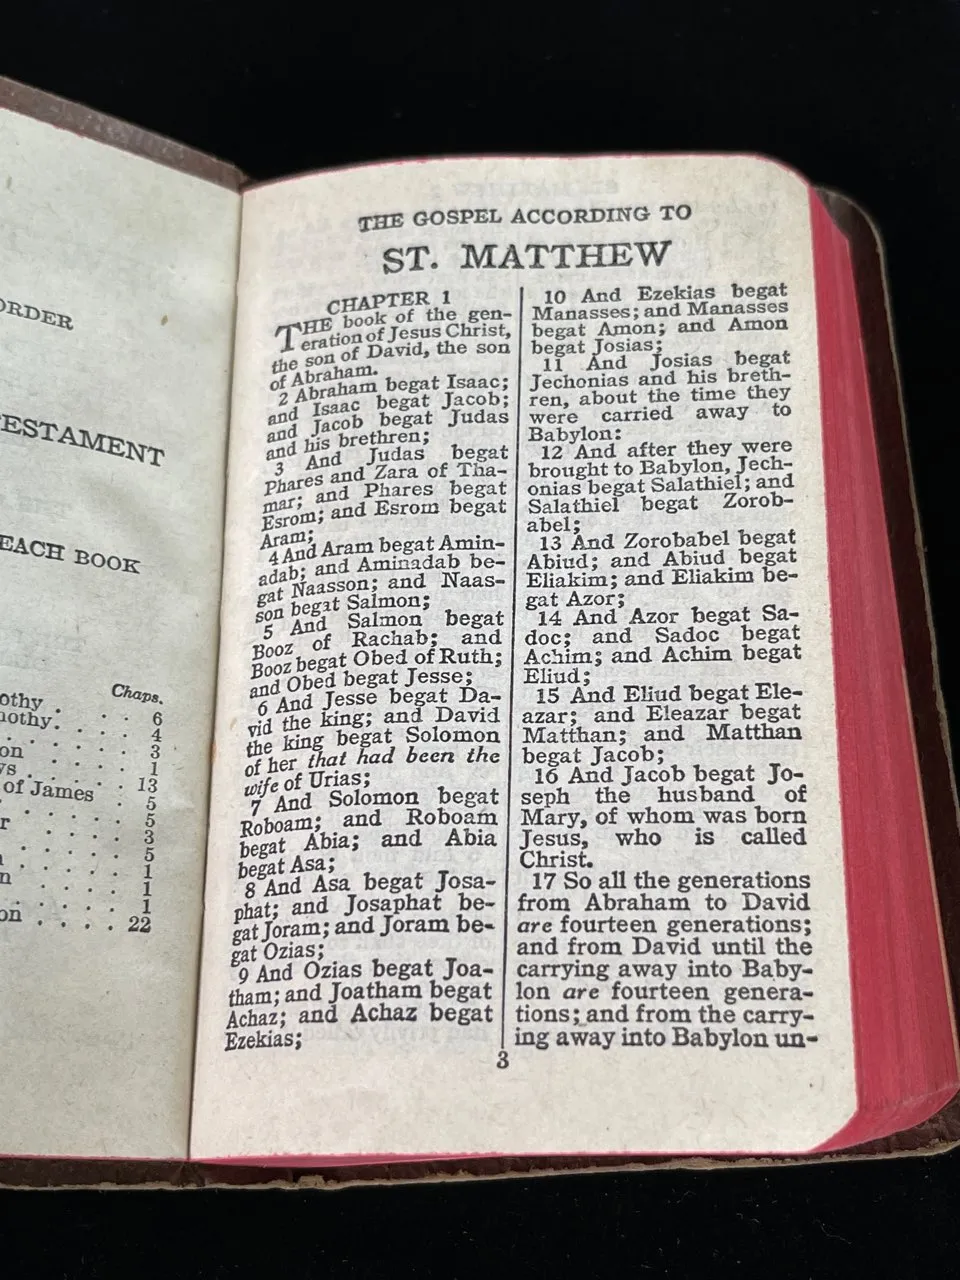 ORDER
TESTAMENT
EACH BOOK
Chaps.
othy . . . 6
mothy. . . 4
. . . . . 3
on . . . . 1
ws . . . . 13
of James . 5
. . . . . 5
r . . . . 3
. . . . . 5
n . . . . 1
. . . . . 1
. . . . . 1
on . . . . 22
THE GOSPEL ACCORDING TO
ST. MATTHEW
CHAPTER 1
THE book of the gen-
eration of Jesus Christ,
the son of David, the son
of Abraham.
2 Abraham begat Isaac;
and Isaac begat Jacob;
and Jacob begat Judas
and his brethren;
3 And Judas begat
Phares and Zara of Tha-
mar; and Phares begat
Esrom; and Esrom begat
Aram;
4 And Aram begat Amin-
adab; and Aminadab be-
gat Naasson; and Naas-
son begat Salmon;
5 And Salmon begat
Booz of Rachab; and
Booz begat Obed of Ruth;
and Obed begat Jesse;
6 And Jesse begat Da-
vid the king; and David
the king begat Solomon
of her that had been the
wife of Urias;
7 And Solomon begat
Roboam; and Roboam
begat Abia; and Abia
begat Asa;
8 And Asa begat Josa-
phat; and Josaphat be-
gat Joram; and Joram be-
gat Ozias;
9 And Ozias begat Joa-
tham; and Joatham begat
Achaz; and Achaz begat
Ezekias;
10 And Ezekias begat
Manasses; and Manasses
begat Amon; and Amon
begat Josias;
11 And Josias begat
Jechonias and his breth-
ren, about the time they
were carried away to
Babylon:
12 And after they were
brought to Babylon, Jech-
onias begat Salathiel; and
Salathiel begat Zorob-
abel;
13 And Zorobabel begat
Abiud; and Abiud begat
Eliakim; and Eliakim be-
gat Azor;
14 And Azor begat Sa-
doc; and Sadoc begat
Achim; and Achim begat
Eliud;
15 And Eliud begat Ele-
azar; and Eleazar begat
Matthan; and Matthan
begat Jacob;
16 And Jacob begat Jo-
seph the husband of
Mary, of whom was born
Jesus, who is called
Christ.
17 So all the generations
from Abraham to David
are fourteen generations;
and from David until the
carrying away into Baby-
lon are fourteen genera-
tions; and from the carry-
ing away into Babylon un-
3